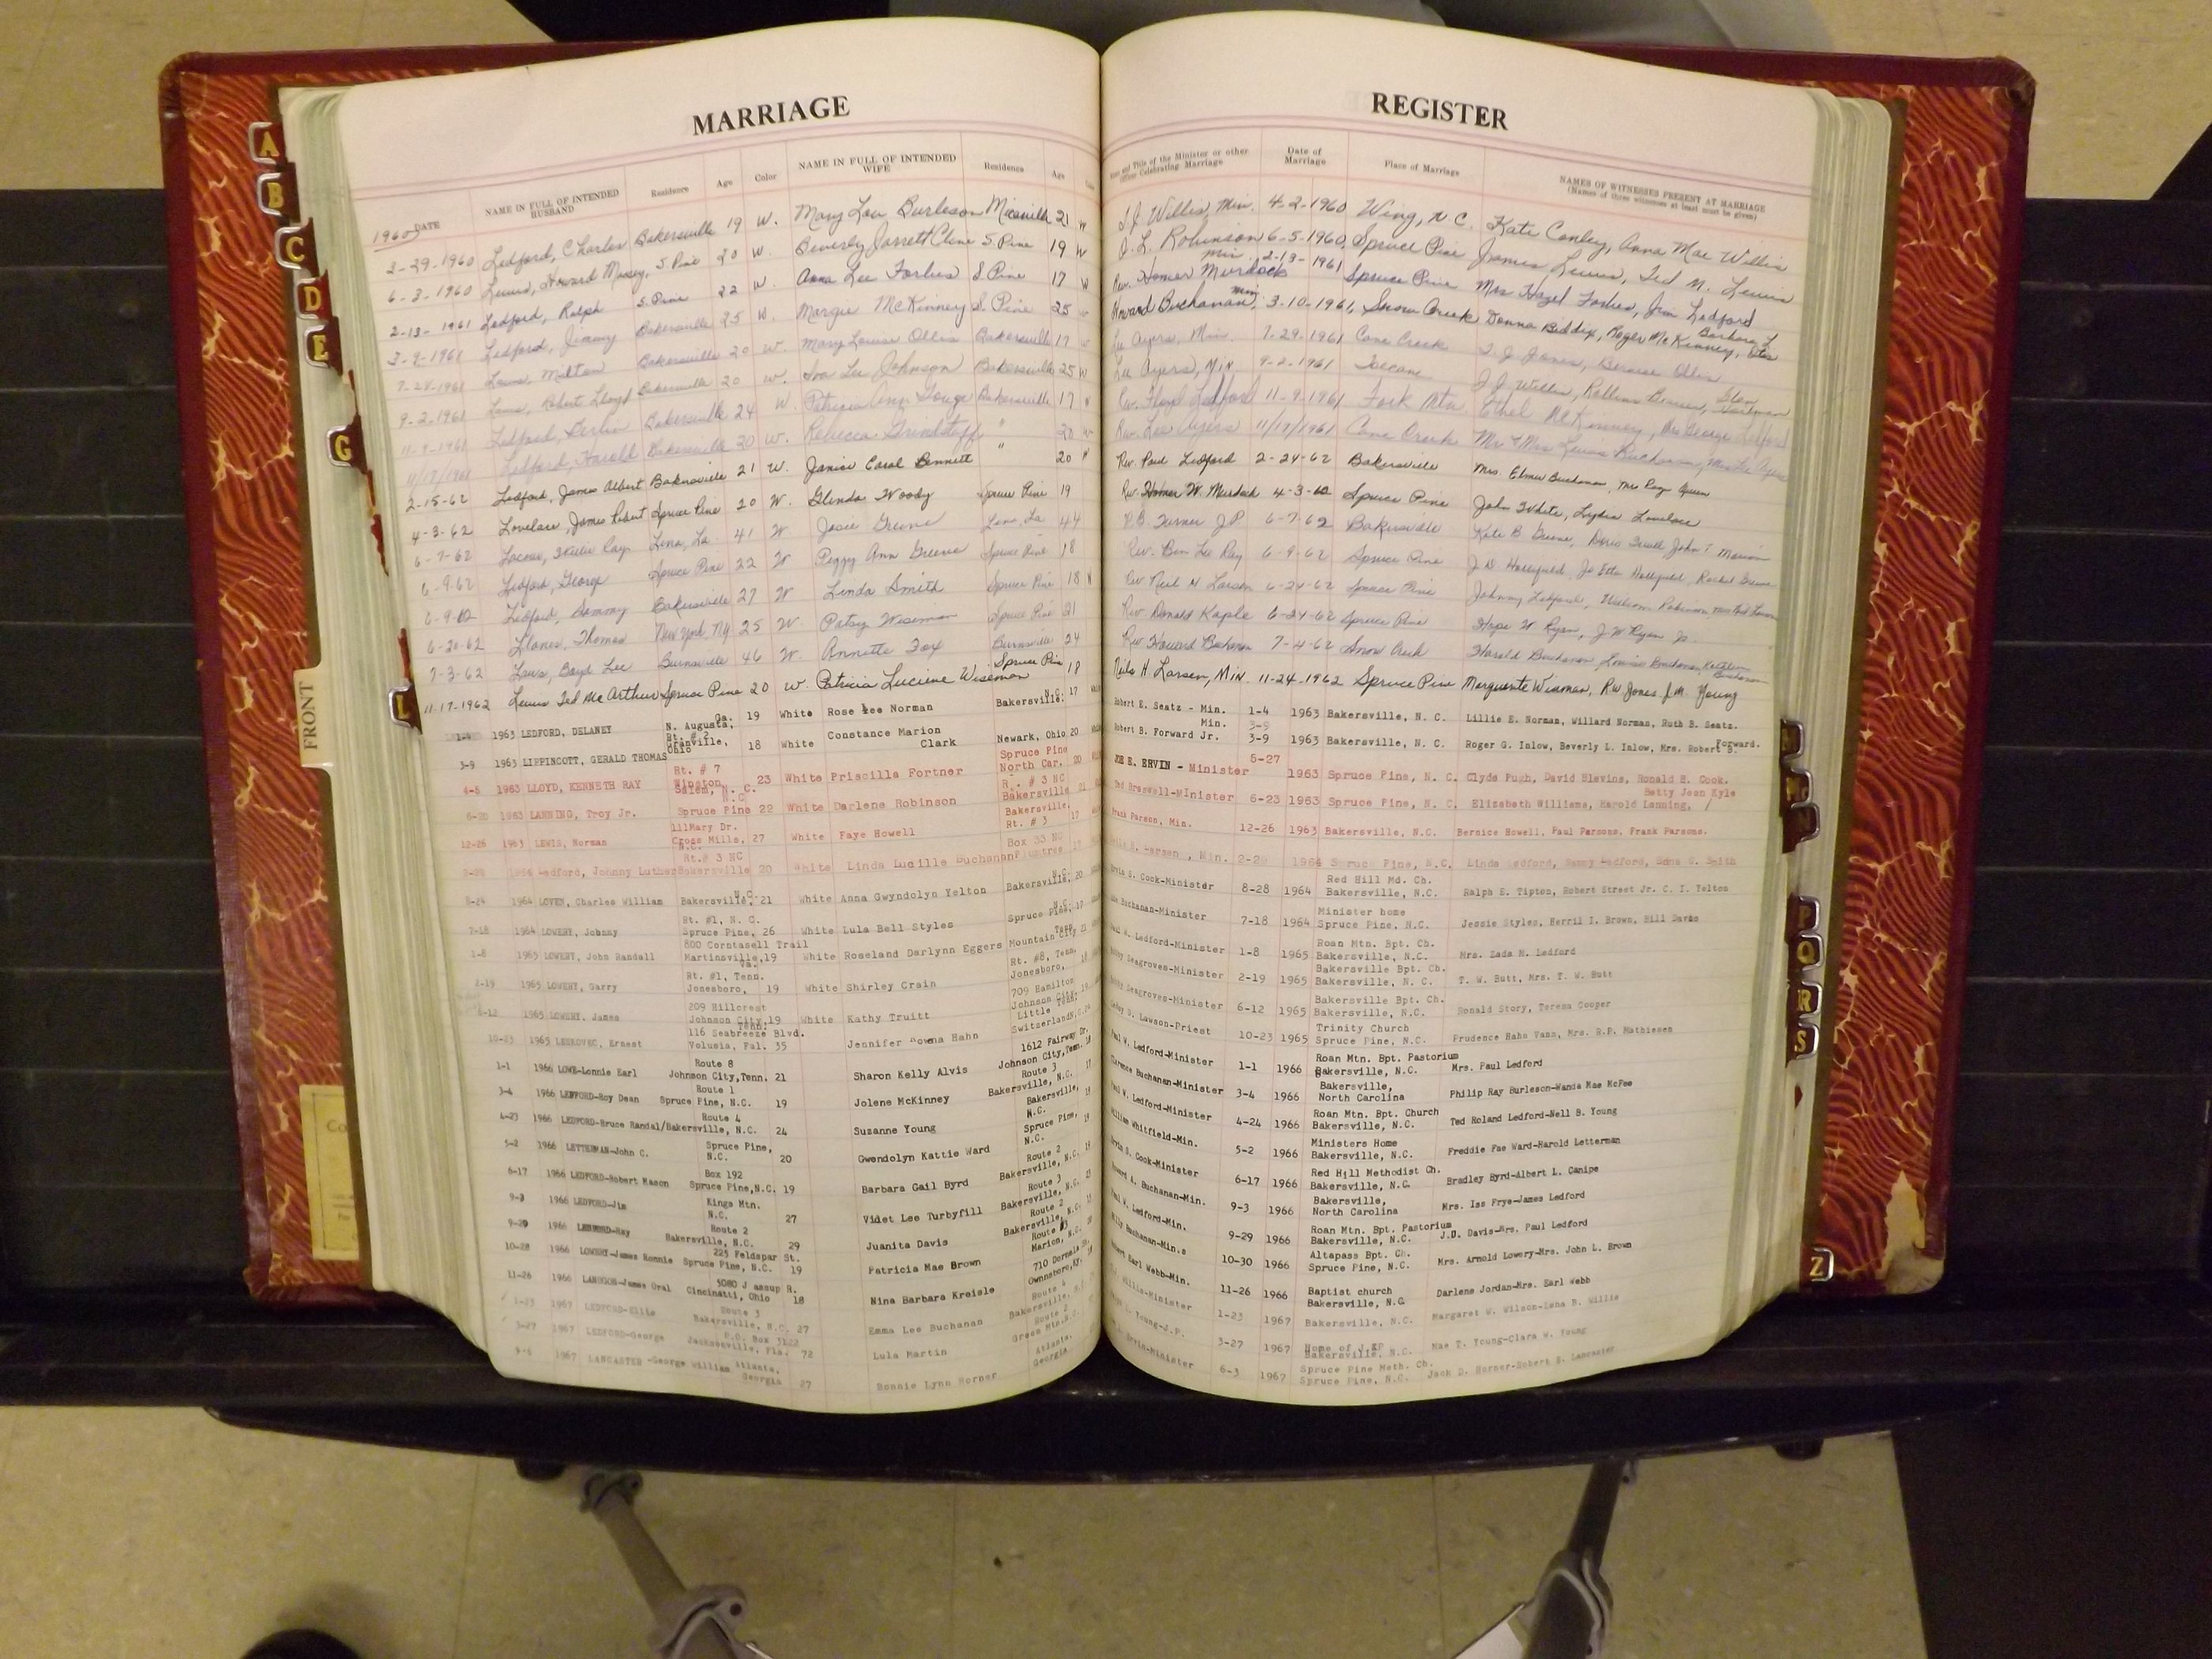 MARRIAGE
REGISTER
DATE NAME IN FULL OF INTENDED HUSBAND Residence Age Color NAME IN FULL OF INTENDED WIFE Residence Age
Title of the Minister or other Officer Celebrating Marriage Date of Marriage Place of Marriage NAMES OF WITNESSES PRESENT AT MARRIAGE
(Names of three witnesses at least must be given)
1960
3-29-1960 Ledford, Charles Bakersville 19 W. Mary Lou Burleson Micaville 21 W Willis, Min. 4-2-1960 Wing, N C. Kate Conley, Anna Mae Willis
6-3-1960 Lewis, Howard S. Pine 20 W. Beverly Jarrett Cline S. Pine 19 W Robinson min 6-5-1960 Spruce Pine James Lewis, Ted M. Lewis
2-13-1961 Ledford, Ralph S. Pine 22 W. Anna Lee Forbes S. Pine 17 W Rev. Homer Murdock 2-13-1961 Spruce Pine Mrs Hazel Forbes, Jim Ledford
3-9-1961 Ledford, Jimmy Bakersville 25 W. Margie McKinney S. Pine 25 W Howard Buchanan, min 3-10-1961, Snow Creek Donna Biddix, Roger McKinney, Barbara L
7-28-1961 Laws, Milton Bakersville 20 W. Mary Louise Ollis Bakersville 17 W Lee Ayers, Min. 7-29-1961 Cane Creek Jones, Bernice Ollis
9-2-1961 Laws, Robert Lloyd Bakersville 20 W. Iva Lee Johnson Bakersville 25 W Lee Ayers, Min 9-2-1961 Toecane Willis, Rollins
11-9-1961 Ledford, Bakersville 24 W. Patricia Ann Gouge Bakersville 17 W Rev. Floyd Ledford 11-9-1961 Fork Mtn Ethel McKinney, Mrs George Ledford
11/17/1961 Ledford, Harold Bakersville 20 W. Rebecca Grindstaff " 20 W Rev. Lee Ayers 11/17/1961 Cane Creek Mr & Mrs Lewis Buchanan, Mrs Lee Ayers
2-15-62 Ledford, James Albert Bakersville 21 W. Janice Carol Bennett " 20 W Rev. Paul Ledford 2-24-62 Bakersville Mrs. Elmer Buchanan, Mrs Ray Green
4-3-62 Lovelace, James Robert Spruce Pine 20 W. Glenda Woody Spruce Pine 19 Rev. Homer W. Murdock 4-3-62 Spruce Pine John White, Lydia Lovelace
6-7-62 Ray Lena, La. 41 W. Josie Greene Lena, La 44 Turner JP 6-7-62 Bakersville Kate B Greene, Doris John T
6-9-62 Ledford, George Spruce Pine 22 W Peggy Ann Greene Spruce Pine 18 Rev. Ben Lee Ray 6-9-62 Spruce Pine J D Hollifield, Jo Etta Hollifield, Rachel Greene
6-9-62 Ledford, Sammy Bakersville 27 W Linda Smith Spruce Pine 18 W Rev Neil H Larsen 6-24-62 Spruce Pine Johnny Ledford, Robinson,
6-20-62 Llanes, Thomas New York NY 25 W. Patsy Wiseman Spruce Pine 21 Rev Donald Kaple 6-24-62 Spruce Pine Hope W Ryan, J W Ryan Jr.
7-3-62 Laws, Boyd Lee Burnsville 46 W. Annette Fox Burnsville 24 Rev Howard Buchanan 7-4-62 Snow Creek Harold Buchanan, Buchanan, Kathleen Buchanan
11-17-1962 Lewis Ted McArthur Spruce Pine 20 W. Patricia Luciene Wiseman Spruce Pine 18 Neils H. Larsen, Min. 11-24-1962 Spruce Pine Marguerite Wiseman, R.W Jones J.M. Young
1-4 1963 LEDFORD, DELANEY N. Augusta, Ga. Rt. # 2 19 White Rose Lee Norman Bakersville, N.C. 17 Robert E. Seatz - Min. 1-4 1963 Bakersville, N. C. Lillie E. Norman, Willard Norman, Ruth B. Seatz.
3-9 1963 LIPPINCOTT, GERALD THOMAS Granville, Ohio 18 White Constance Marion Clark Newark, Ohio 20 Robert B. Forward Jr. Min. 3-9 3-9 1963 Bakersville, N. C. Roger G. Inlow, Beverly L. Inlow, Mrs. Robert B. Forward.
4-6 1963 LLOYD, KENNETH RAY Rt. # 7 Winston Salem, N. C. 23 White Priscilla Fortner Spruce Pine North Car. 20 JOE E. ERVIN - Minister 5-27 1963 Spruce Pine, N. C. Clyde Pugh, David Blevins, Ronald E. Cook. Betty Jean Kyle
6-20 1963 LANNING, Troy Jr. N.C. Spruce Pine 22 White Darlene Robinson R. # 3 NC Bakersville 21 Ted Braswell-Minister 6-23 1963 Spruce Pine, N. C. Elizabeth Williams, Harold Lanning,
12-26 1963 LEWIS, Norman 111Mary Dr. Cross Mills, N.C. 27 White Faye Howell Bakersville, Rt. # 3 17 Frank Parson, Min. 12-26 1963 Bakersville, N.C. Bernice Howell, Paul Parsons, Frank Parsons.
2-28 1964 Ledford, Johnny Luther Rt.# 3 NC Bakersville 20 White Linda Lucille Buchanan Box 33 NC Plumtree 17 Larsen, Min. 2-28 1964 Spruce Pine, N.C. Linda Ledford, Sammy Ledford, Edna G. Smith
8-24 1964 LOVEN, Charles William Bakersville, N.C. 21 White Anna Gwyndolyn Yelton Bakersville, N.C. 20 Ervin S. Cook-Minister 8-28 1964 Red Hill Md. Ch. Bakersville, N.C. Ralph E. Tipton, Robert Street Jr. C. I. Yelton
7-18 1964 LOWERY, Johnny Rt. #1, N. C. Spruce Pine, 26 White Lula Bell Styles Spruce Pine, N.C. 17 Buchanan-Minister 7-18 1964 Minister home Spruce Pine, N.C. Jessie Styles, Herril I. Brown, Bill Davis
1-8 1965 LOWERY, John Randall 800 Corntasell Trail Martinsville, Va. 19 White Roseland Darlynn Eggers Mountain City Tenn. 21 Paul W. Ledford-Minister 1-8 1965 Roan Mtn. Bpt. Ch. Bakersville, N.C. Mrs. Zada M. Ledford
2-19 1965 LOWERY, Garry Rt. #1, Tenn. Jonesboro, 19 White Shirley Crain Rt. #8, Tenn. Jonesboro, 18 Bobby Seagroves-Minister 2-19 1965 Bakersville Bpt. Ch. Bakersville, N. C. T. W. Butt, Mrs. T. W. Butt
6-12 1965 LOWERY, James 209 Hillcrest Johnson City, Tenn. 19 White Kathy Truitt 709 Hamilton Johnson City, Tenn. 19 Bobby Seagroves-Minister 6-12 1965 Bakersville Bpt. Ch. Bakersville, N.C. Ronald Story, Teresa Cooper
10-23 1965 LESKOVEC, Ernest 116 Seabreeze Blvd. Volusia, Fal. 35 Jennifer Rowena Hahn Little Switzerland, N.C. 24 Leroy D. Lawson-Priest 10-23 1965 Trinity Church Spruce Pine, N.C. Prudence Hahn Vann, Mrs. R.P. Mathiesen
1-1 1966 LOWE-Lonnie Earl Route 8 Johnson City,Tenn. 21 Sharon Kelly Alvis 1612 Fairway Dr. Johnson City,Tenn. 18 Paul W. Ledford-Minister 1-1 1966 Roan Mtn. Bpt. Pastorium Bakersville, N.C. Mrs. Paul Ledford
3-4 1966 LEDFORD-Roy Dean Route 1 Spruce Pine, N.C. 19 Jolene McKinney Route 3 Bakersville, N.C. 17 Clarence Buchanan-Minister 3-4 1966 Bakersville, North Carolina Philip Ray Burleson-Wanda Mae McFee
4-23 1966 LEDFORD-Bruce Randal/ Route 4 Bakersville, N.C. 24 Suzanne Young Bakersville, N.C. 18 Paul W. Ledford-Minister 4-24 1966 Roan Mtn. Bpt. Church Bakersville, N.C. Ted Roland Ledford-Nell B. Young
5-2 1966 LETTERMAN-John C. Spruce Pine, N.C. 20 Gwendolyn Kattie Ward Spruce Pine, N.C. 18 William Whitfield-Min. 5-2 1966 Ministers Home Bakersville, N.C. Freddie Fae Ward-Harold Letterman
6-17 1966 LEDFORD-Robert Mason Box 192 Spruce Pine,N.C. 19 Barbara Gail Byrd Route 2 Bakersville, N.C. 18 Ervin S. Cook-Minister 6-17 1966 Red Hill Methodist Ch. Bakersville, N.C. Bradley Byrd-Albert L. Canipe
9-3 1966 LEDFORD-Jim Kings Mtn. N.C. 27 Videt Lee Turbyfill Route 3 Bakersville, N.C. 23 Howard A. Buchanan-Min. 9-3 1966 Bakersville, North Carolina Mrs. Iss Frye-James Ledford
9-29 1966 LEDFORD-Ray Route 2 Bakersville, N.C. 29 Juanita Davis Route 2 Bakersville, N.C. Paul W. Ledford-Min. 9-29 1966 Roan Mtn. Bpt. Pastorium Bakersville, N.C. J.D. Davis-Mrs. Paul Ledford
10-28 1966 LOWERY-James Ronnie 225 Feldspar St. Spruce Pine, N.C. 19 Patricia Mae Brown Route #3 Marion, N.C. Buchanan-Min.s 10-30 1966 Altapass Bpt. Ch. Spruce Pine, N.C. Mrs. Arnold Lowery-Mrs. John L. Brown
11-26 1966 LANDON-James Oral 5080 Jassup R. Cincinatti, Ohio 18 Nina Barbara Kreisle 710 Dornela Dr. Ownnsboro,Ky. Robert Earl Webb-Min. 11-26 1966 Baptist church Bakersville, N.C. Darlene Jordan-Mrs. Earl Webb
1-23 1967 LEDFORD-Ellis Route 3 Bakersville, N.C. 27 Emma Lee Buchanan Route 4 Bakersville, N.C. Willis-Minister 1-23 1967 Bakersville, N.C. Margaret W. Wilson-Lena B. Willis
3-27 1967 LEDFORD-George P.O. Box 5122 Jacksonville, Fla. 72 Lula Martin Route 2 Green Mtn.N.C. Young-J.P. 3-27 1967 Home of J.P. Bakersville, N.C. Mae T. Young-Clara W. Young
1967 LANCASTER-George William Atlanta, Georgia 27 Bonnie Lynn Horner Atlanta, Georgia Ervin-Minister 6-3 1967 Spruce Pine Meth. Ch. Spruce Pine, N.C. Jack D. Horner-Robert B. Lancaster
A
B
C
D
E
G
L
FRONT
P
Q
R
S
Z